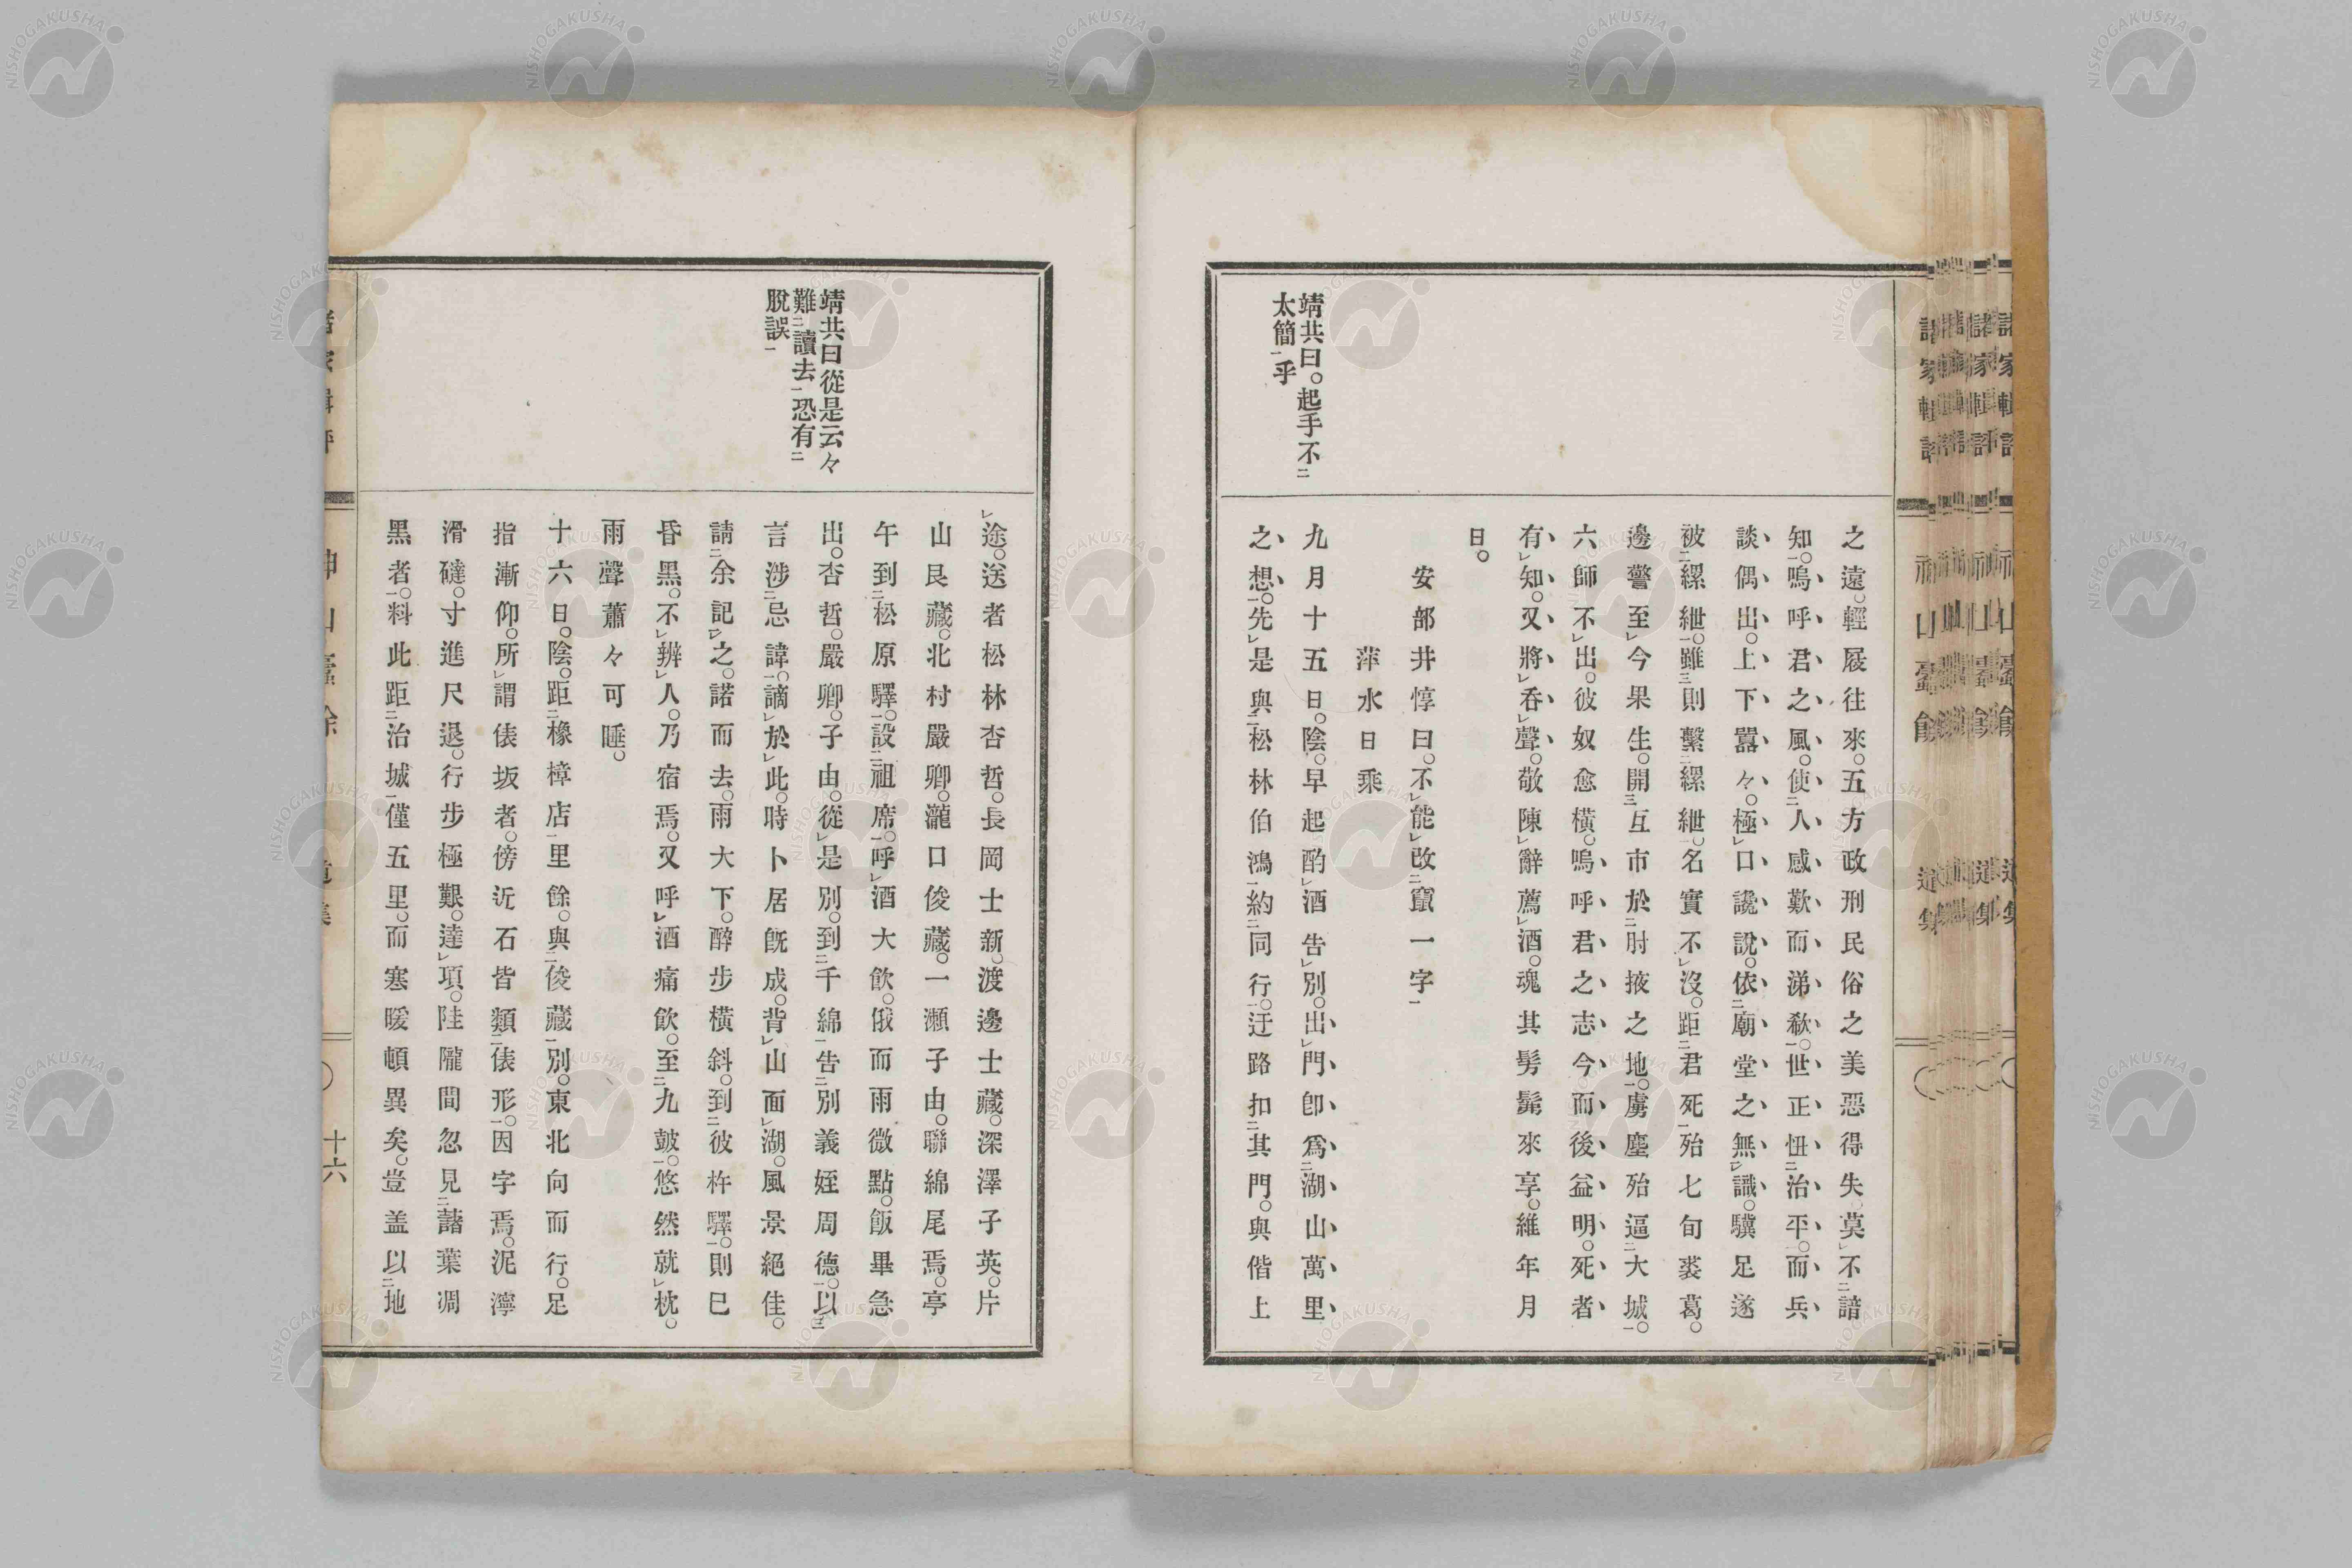 之遠。輕屐往來。五方政刑民俗之美惡得失。莫㆑不㆓諳
知㆒。嗚呼、君之風。使㆓人感歎而涕欷㆒。世正忸㆓治平㆒。而兵
談偶出。上下囂々。極㆑口讒說。依㆓廟堂之無㆑識。驥足遂
被㆓縲紲㆒。雖㆔則繫㆓縲紲㆒。名實不㆑沒。距㆓君死㆒殆七旬裘葛。
邊警至㆑今果生。開㆔互市於㆓肘掖之地㆒。虜塵殆逼㆓大城㆒。
六師不㆑出。彼奴愈橫。嗚呼君之志今而後益明。死者
有㆑知。又將㆑呑㆑聲。敬陳㆑辭薦㆑酒。魂其髣髴來享。維年月
日。
安部井惇曰。不㆑能㆑改㆓竄一字㆒
萍水日乘
靖共曰。起手不㆓
太簡㆒乎
九月十五日。陰。早起酌㆑酒告㆑別。出㆑門卽爲㆓湖山萬里
之想㆒。先㆑是與㆓松林伯鴻㆒約㆓同行㆒。迂路扣㆓其門㆒。與偕上
㆑途。送者松林杏哲。長岡士新。渡邊士藏。深澤子英。片
山艮藏。北村嚴卿。瀧口俊藏。一瀬子由。聯綿尾焉。亭
午到㆓松原驛㆒。設㆓祖席㆒。呼㆑酒大飮。俄而雨微點。飯畢急
靖共曰從是云々
難㆓讀去㆒恐有㆓
脫誤㆒
出。杏哲。嚴卿。子由。從㆑是別。到㆓千綿㆒告㆓別義姪周德㆒。以㆔
言涉㆓忌諱㆒。謫㆑於㆑此。時卜居旣成。背㆑山面㆑湖。風景絕佳。
請㆓余記㆒㆑之。諾而去。雨大下。醉步橫斜。到㆓彼杵驛㆒。則巳
昏黑。不㆑辨㆑人。乃宿焉。又呼㆑酒痛飮。至㆓九皷㆒。悠然就㆑枕。
雨聲蕭々可㆑睡。
十六日。陰。距㆓橡樟店㆒里餘。與㆓俊藏㆒別。東北向而行。足
指漸仰。所㆑謂俵坂者。傍近石皆類㆓俵形㆒。因字焉。泥濘
滑磴。寸進尺退。行步極艱。達㆑項。陸隴間忽見㆓藷葉凋
黑者㆒。料此距㆓治城㆒僅五里。而寒暖頓異矣。豈盖以㆓地
十六